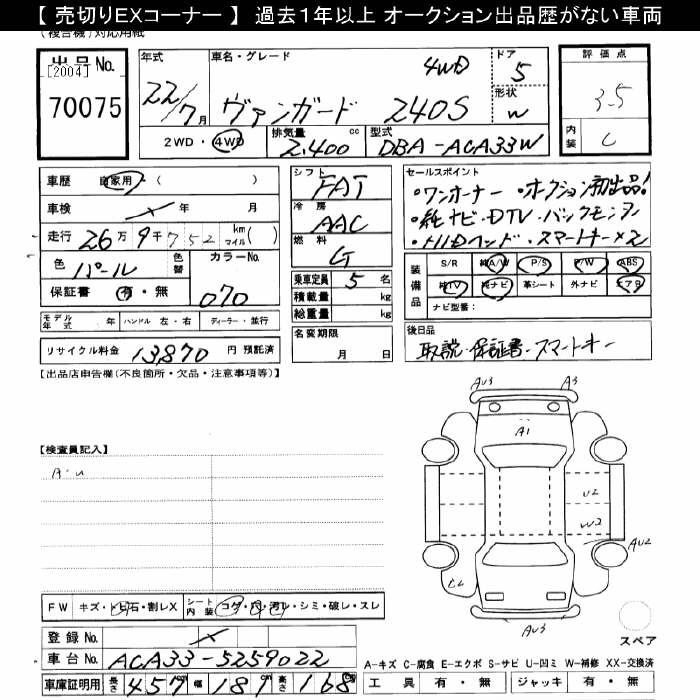 【 売切りEXコーナー 】 過去1年以上 オークション出品歴がない車両
(複合機)対応用紙
出品No.
[2004]
70075
年式
22/7月
車名・グレード
ヴァンガード 240S
4WD
ドア
5
形状
W
2WD・4WD
排気量
2,400 cc
型式
DBA-ACA33W
評価点
3.5
内装
C
車歴 自家用・( )
車検 年 月
走行 26万9千752 km マイル( )
色 パール 色替
カラーNo.
070
保証書 有・無
モデル年式 年 ハンドル 左・右 ディーラー・並行
リサイクル料金 13,870 円 預託済
シフト
FAT
冷房
AAC
燃料
G
乗車定員 5 名
積載量 kg
総重量 kg
名変期限
月 日
セールスポイント
・ワンオーナー ・オークション初出品!
・純ナビ・DTV・バックモニター
・HIDヘッド・スマートキー×2
装備品
S/R 純A/W P/S P/W ABS
純TV 純ナビ 革シート 外ナビ エアB
ナビ型番:
後日品
取説・保証書・スマートキー
【出品店申告欄(不良箇所・欠品・注意事項等)】
【検査員記入】
A・U
AU3
A3
A1
U2
W2
AU2
AU3
FW キズ・トビ石・割レX シート内装 コゲ・穴・汚レ・シミ・破レ・スレ
登録No.
車台No. ACA33-5259022
車庫証明用 長さ 457 cm 幅 187 cm 高さ 168 cm
スペア
A-キズ C-腐食 E-エクボ S-サビ U-凹ミ W-補修 XX-交換済
工具 有・無 ジャッキ 有・無